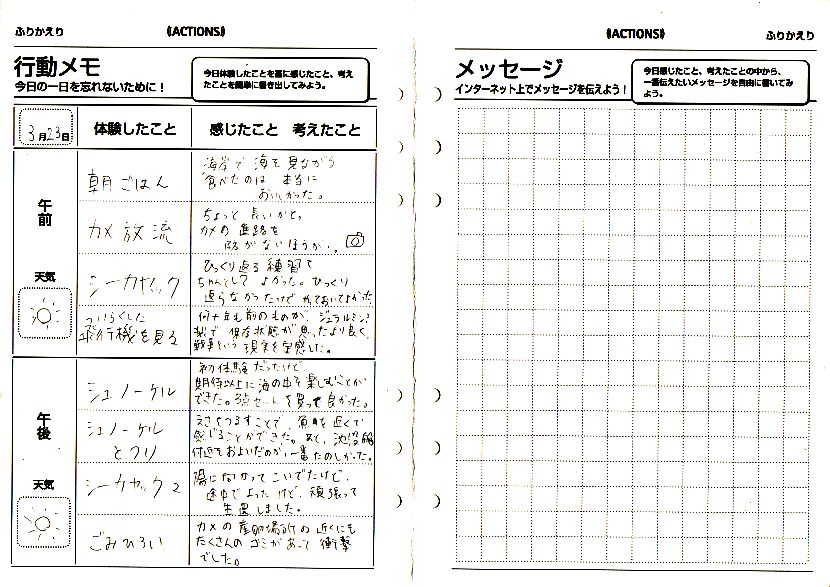 ふりかえり
《ACTIONS》
行動メモ
今日の一日を忘れないために！
今日体験したことを基に感じたこと、考え
たことを簡単に書き出してみよう。
3月23日
体験したこと
感じたこと 考えたこと
午前
天気
朝ごはん
海岸で海を見ながら
食べたのは 本当に
おいしかった。
カメ放流
ちょっと長いかと。
カメの進路を
防がないほうが..
シーカヤック
ひっくり返る練習も
ちゃんとして よかった。ひっくり
返らなかったけど やっておいてよかった
ついらくした
飛行機を見る
何十年も前のものが、ジュラルミン
製で 保存状態が 思ったより良く、
戦争という 現実を実感した。
午後
天気
シュノーケル
初体験だったけど、
期待以上に海の中を楽しむことが
できた。3点セットを買って良かった。
シュノーケル
とつり
えさでつることで、魚を近くで
感じることができた。あと、沈没船
付近をおよいだのが、一番たのしかった。
シーカヤック2
陽にむかって こいでたけど、
途中でよったけど、頑張って
生還しました。
ごみひろい
カメの産卵場所の近くにも
たくさんの ゴミがあって 衝撃
でした。
《ACTIONS》
ふりかえり
メッセージ
インターネット上でメッセージを伝えよう！
今日感じたこと、考えたことの中から、
一番伝えたいメッセージを自由に書いてみ
よう。